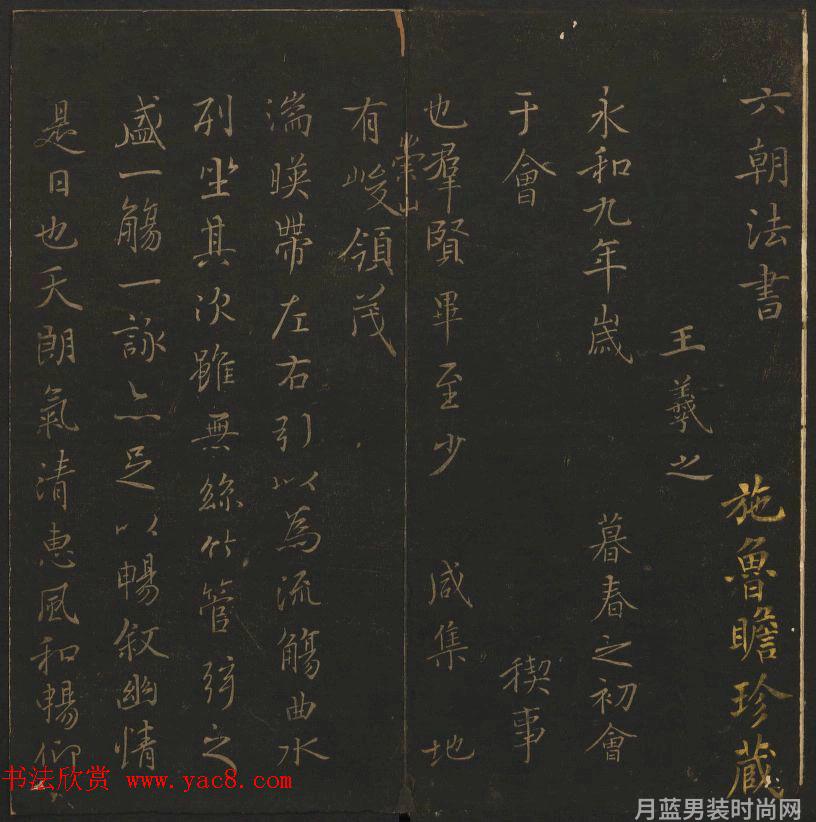 六朝法書
施魯瞻珍藏
王羲之
永和九年歲
暮春之初會
于會
稧事
也羣賢畢至少
咸集
地
有崇山峻領茂
湍暎帶左右引以為流觴曲水
列坐其次雖無絲竹管弦之
盛一觴一詠亦足以暢敘幽情
是日也天朗氣清惠風和暢仰
书法欣赏 www.yac8.com
月蓝男装时尚网